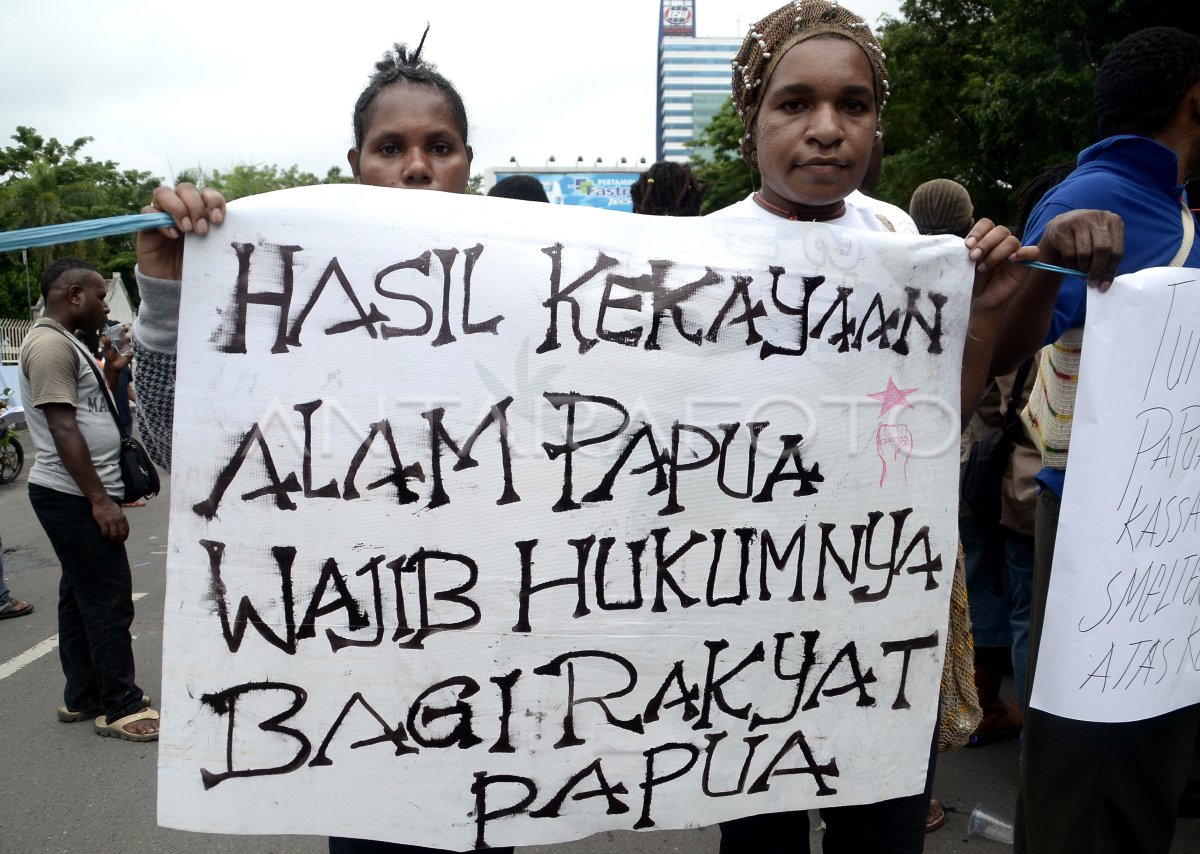 HASIL KEKAYAAN
ALAM PAPUA
WAJIB HUKUMNYA
BAGI RAKYAT
PAPUA
ANTARAFOTO
PERTAMINA
Fastron
PAPUA
SMELTER
ATAS